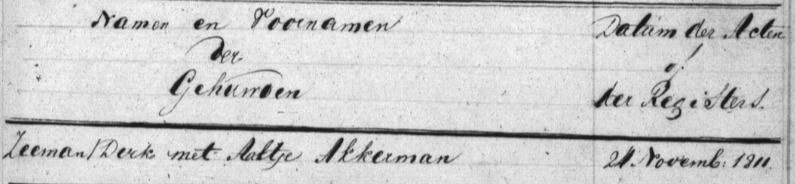 Namen en Voornamen
der
Gehuwden
Datum der Acten
of
der Registers.
Zeeman/Derk met Aaltje Akkerman
21 Novemb: 1811.